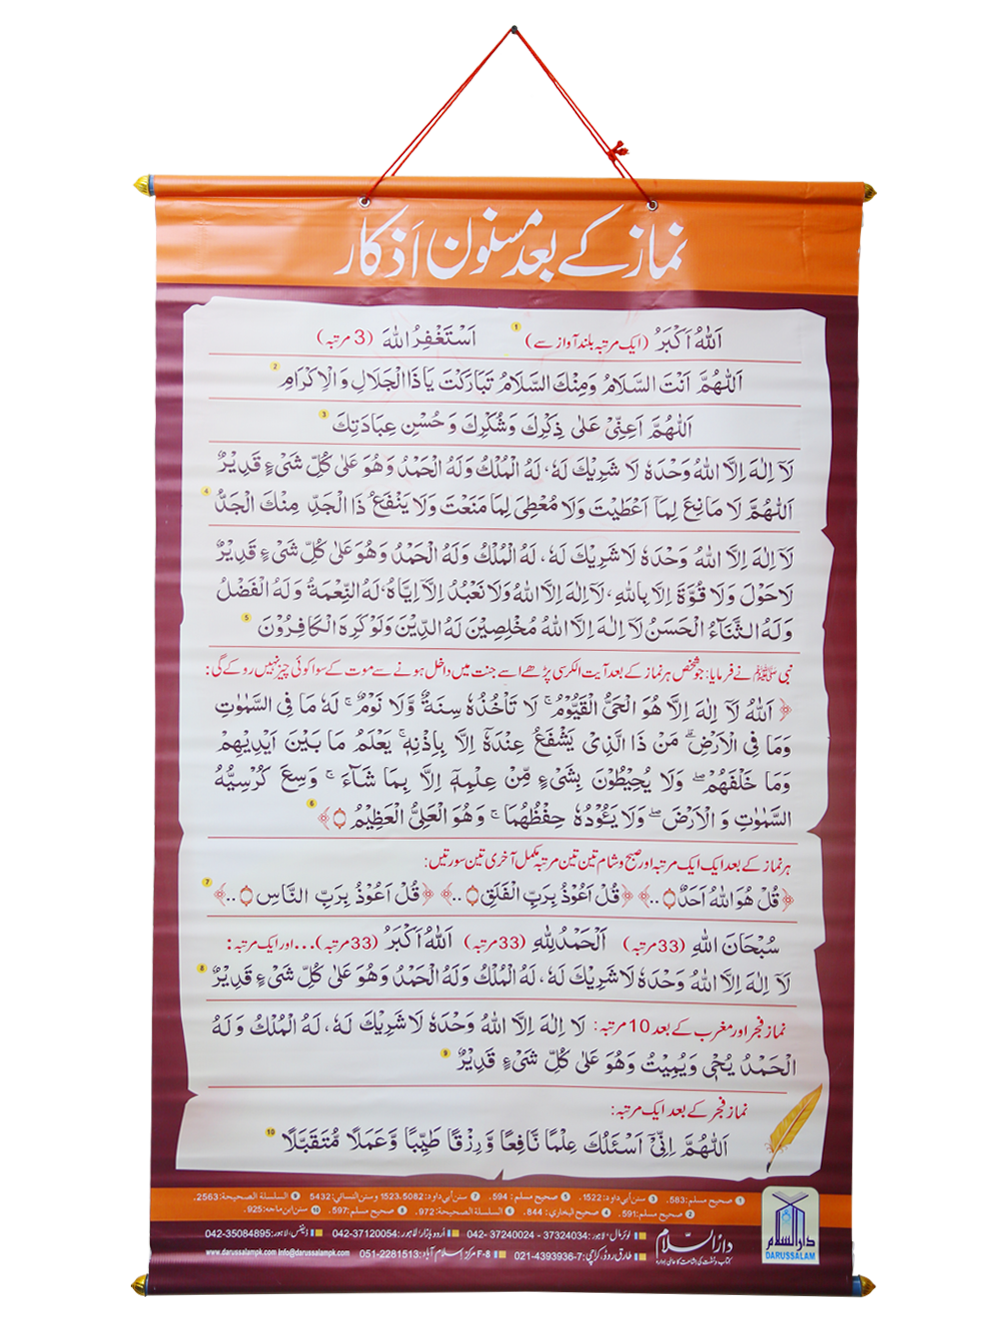 نماز کے بعد مسنون اَذکار
اَللّٰهُ اَكْبَرُ (ایک مرتبہ بلند آواز سے) 1 اَسْتَغْفِرُ اللهَ (3 مرتبہ)
اَللّٰهُمَّ اَنْتَ السَّلَامُ وَمِنْكَ السَّلَامُ تَبَارَكْتَ يَا ذَا الْجَلَالِ وَالْاِكْرَامِ 2
اَللّٰهُمَّ اَعِنِّيْ عَلٰى ذِكْرِكَ وَشُكْرِكَ وَحُسْنِ عِبَادَتِكَ 3
لَآ اِلٰهَ اِلَّا اللهُ وَحْدَهٗ لَا شَرِيْكَ لَهٗ، لَهُ الْمُلْكُ وَلَهُ الْحَمْدُ وَهُوَ عَلٰى كُلِّ شَىْءٍ قَدِيْرٌ
اَللّٰهُمَّ لَا مَانِعَ لِمَآ اَعْطَيْتَ وَلَا مُعْطِىَ لِمَا مَنَعْتَ وَلَا يَنْفَعُ ذَا الْجَدِّ مِنْكَ الْجَدُّ 4
لَآ اِلٰهَ اِلَّا اللهُ وَحْدَهٗ لَا شَرِيْكَ لَهٗ، لَهُ الْمُلْكُ وَلَهُ الْحَمْدُ وَهُوَ عَلٰى كُلِّ شَىْءٍ قَدِيْرٌ
لَا حَوْلَ وَلَا قُوَّةَ اِلَّا بِاللهِ، لَآ اِلٰهَ اِلَّا اللهُ وَلَا نَعْبُدُ اِلَّآ اِيَّاهُ، لَهُ النِّعْمَةُ وَلَهُ الْفَضْلُ
وَلَهُ الثَّنَآءُ الْحَسَنُ لَآ اِلٰهَ اِلَّا اللهُ مُخْلِصِيْنَ لَهُ الدِّيْنَ وَلَوْ كَرِهَ الْكَافِرُوْنَ 5
نبی ﷺ نے فرمایا: جو شخص ہر نماز کے بعد آیت الکرسی پڑھے اسے جنت میں داخل ہونے سے موت کے سوا کوئی چیز نہیں روکے گی:
﴿ اَللّٰهُ لَآ اِلٰهَ اِلَّا هُوَ الْحَيُّ الْقَيُّوْمُ ۚ لَا تَاْخُذُهٗ سِنَةٌ وَّلَا نَوْمٌ ۚ لَهٗ مَا فِى السَّمٰوٰتِ
وَمَا فِى الْاَرْضِ ۗ مَنْ ذَا الَّذِىْ يَشْفَعُ عِنْدَهٗٓ اِلَّا بِاِذْنِهٖ ۚ يَعْلَمُ مَا بَيْنَ اَيْدِيْهِمْ
وَمَا خَلْفَهُمْ ۖ وَلَا يُحِيْطُوْنَ بِشَىْءٍ مِّنْ عِلْمِهٖٓ اِلَّا بِمَا شَآءَ ۚ وَسِعَ كُرْسِيُّهُ
السَّمٰوٰتِ وَ الْاَرْضَ ۖ وَلَا يَـُٔوْدُهٗ حِفْظُهُمَا ۚ وَهُوَ الْعَلِىُّ الْعَظِيْمُ ۝ ﴾ 6
ہر نماز کے بعد ایک ایک مرتبہ اور صبح و شام تین تین مرتبہ مکمل آخری تین سورتیں:
﴿ قُلْ هُوَ اللهُ اَحَدٌ ۝ .. ﴾ ﴿ قُلْ اَعُوْذُ بِرَبِّ الْفَلَقِ ۝ .. ﴾ ﴿ قُلْ اَعُوْذُ بِرَبِّ النَّاسِ ۝ .. ﴾ 7
سُبْحَانَ اللهِ (33 مرتبہ) اَلْحَمْدُ لِلّٰهِ (33 مرتبہ) اَللّٰهُ اَكْبَرُ (33 مرتبہ)... اور ایک مرتبہ:
لَآ اِلٰهَ اِلَّا اللهُ وَحْدَهٗ لَا شَرِيْكَ لَهٗ، لَهُ الْمُلْكُ وَلَهُ الْحَمْدُ وَهُوَ عَلٰى كُلِّ شَىْءٍ قَدِيْرٌ 8
نماز فجر اور مغرب کے بعد 10 مرتبہ: لَا اِلٰهَ اِلَّا اللهُ وَحْدَهٗ لَا شَرِيْكَ لَهٗ، لَهُ الْمُلْكُ وَلَهُ
الْحَمْدُ يُحْيٖ وَيُمِيْتُ وَهُوَ عَلٰى كُلِّ شَىْءٍ قَدِيْرٌ 9
نماز فجر کے بعد ایک مرتبہ:
اَللّٰهُمَّ اِنِّىْٓ اَسْئَلُكَ عِلْمًا نَّافِعًا وَّرِزْقًا طَيِّبًا وَّعَمَلًا مُّتَقَبَّلًا 10
1 صحيح مسلم: 583. 3 سنن أبي داود: 1522. 5 صحيح مسلم: 594. 7 سنن أبي داود: 1523،5082 و سنن النسائي: 5432 9 السلسلة الصحيحة: 2563.
2 صحيح مسلم: 591. 4 صحيح البخاري: 844. 6 السلسلة الصحيحة: 972. 8 صحيح مسلم: 597. 10 سنن ابن ماجه: 925.
لوئر مال، لاہور: 37324034 - 37240024 -042 اُردو بازار لاہور: 37120054-042 ڈیفنس، لاہور: 35084895-042
طارق روڈ کراچی: 021-4393936-7 F-8 مرکز اسلام آباد: 2281513-051 info@darussalampk.com www.darussalampk.com
دارُالسّلام
کتاب و سنت کی اشاعت کا عالمی ادارہ
دارالسلام
DARUSSALAM